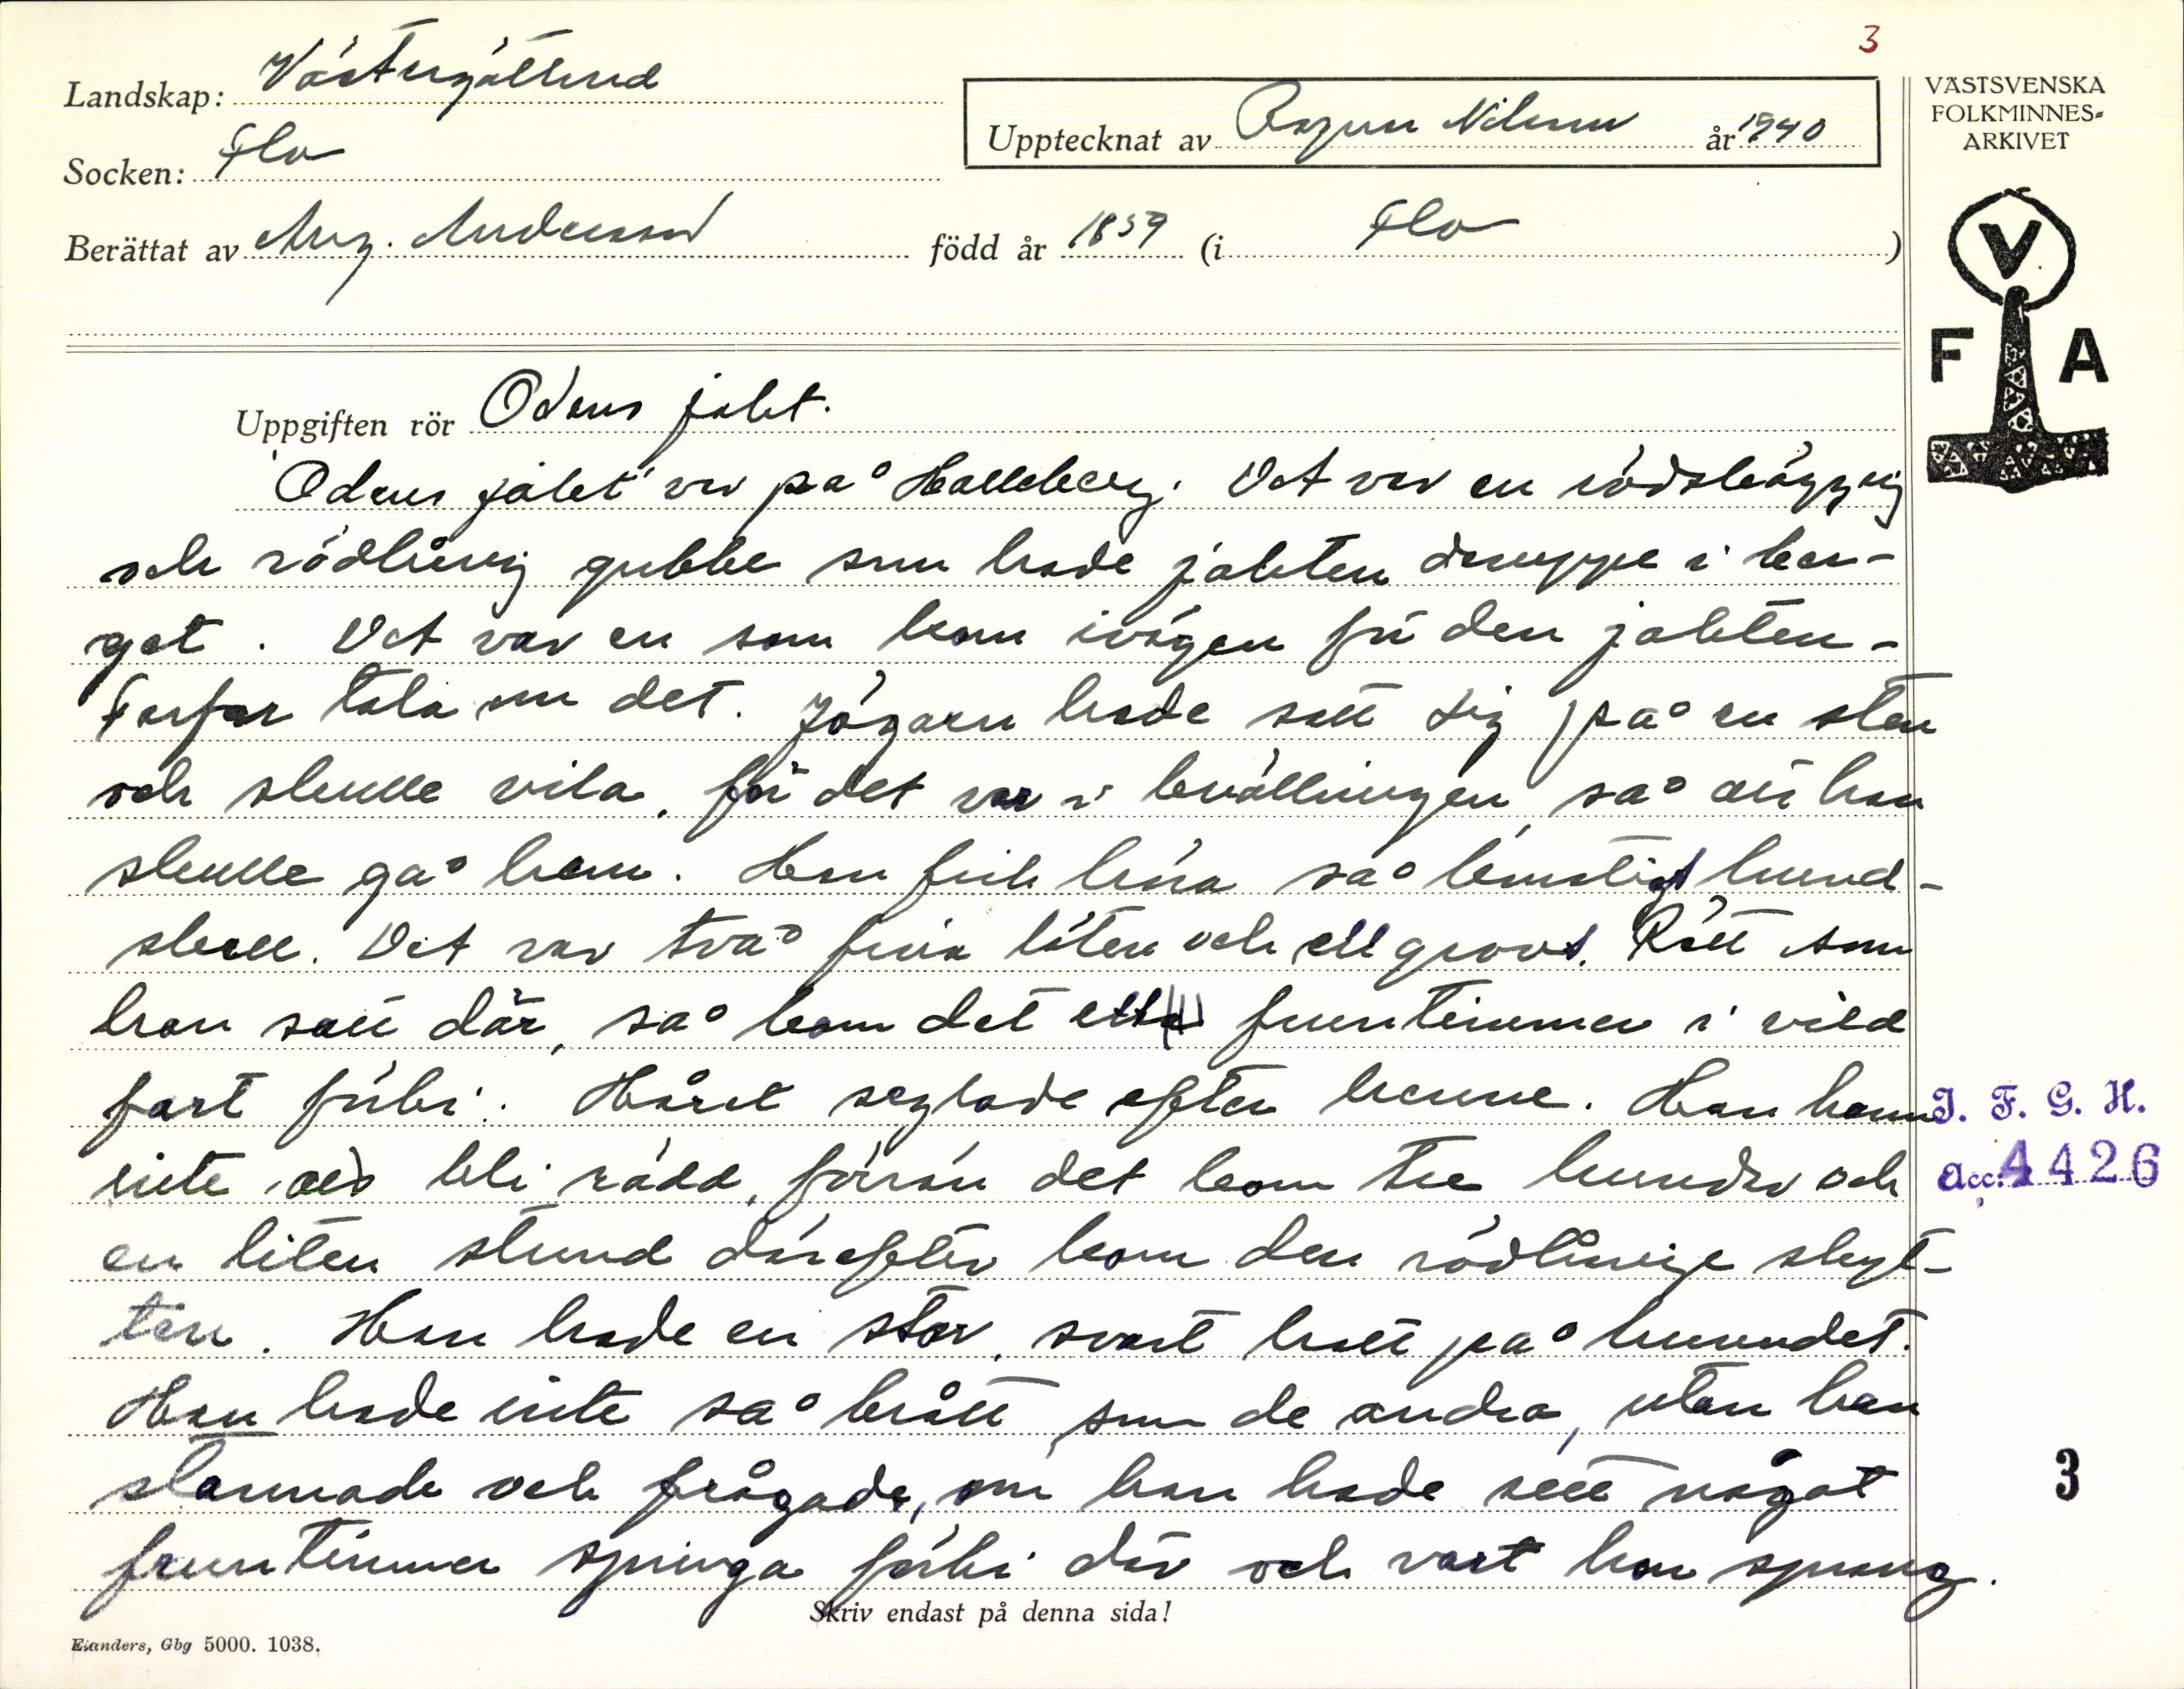 3
Landskap: Västergötland
Socken: Flo
Berättat av Aug. Andersson född år 1859 (i Flo)
Upptecknat av Ragnar Nilsson år 1940
VÄSTSVENSKA
FOLKMINNES-
ARKIVET
V
F A
Uppgiften rör Odens jakt.
"Odens jakt" var på Halleberg. Det var en rödskäggig
och rödhårig gubbe som hade jakten däruppe i ber-
get. Det var en som kom ivägen för den jakten -
Farfar tala om det. Jägaren hade satt sig på en sten
och skulle vila, för det var i kvällningen så att han
skulle gå hem. Han fick höra så konstigt hund-
skall. Det var två fina låten och ett grovt. Rätt som
han satt där, så kom det ett fruntimmer i vild
fart förbi. Håret seglade efter henne. Han hann
inte att bli rädd, förrän det kom tre hundar och
en liten stund därefter kom den rödhårige skyt-
ten. Han hade en stor, svart hatt på huvudet.
Han hade inte så brått som de andra, utan han
stannade och frågade, om han hade sett något
fruntimmer springa förbi där och vart hon sprang.
I. F. G. H.
Acc. 4426
3
Skriv endast på denna sida!
Elanders, Gbg 5000. 1038.